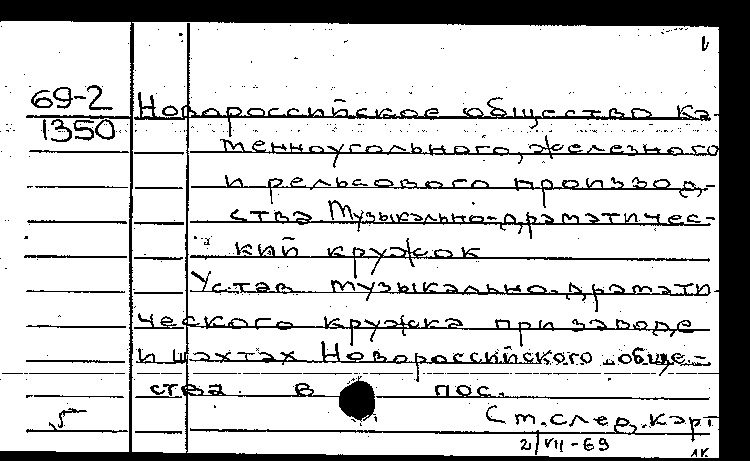 69-2
1350
Новороссийское общество ка-
менноугольного, железного
и рельсового производ-
ства. Музыкально-драматичес-
кий кружок
Устав музыкально-драмати-
ческого кружка при заводе
и шахтах Новороссийского обще-
ства в пос.
См. след. карт
2/VII-69